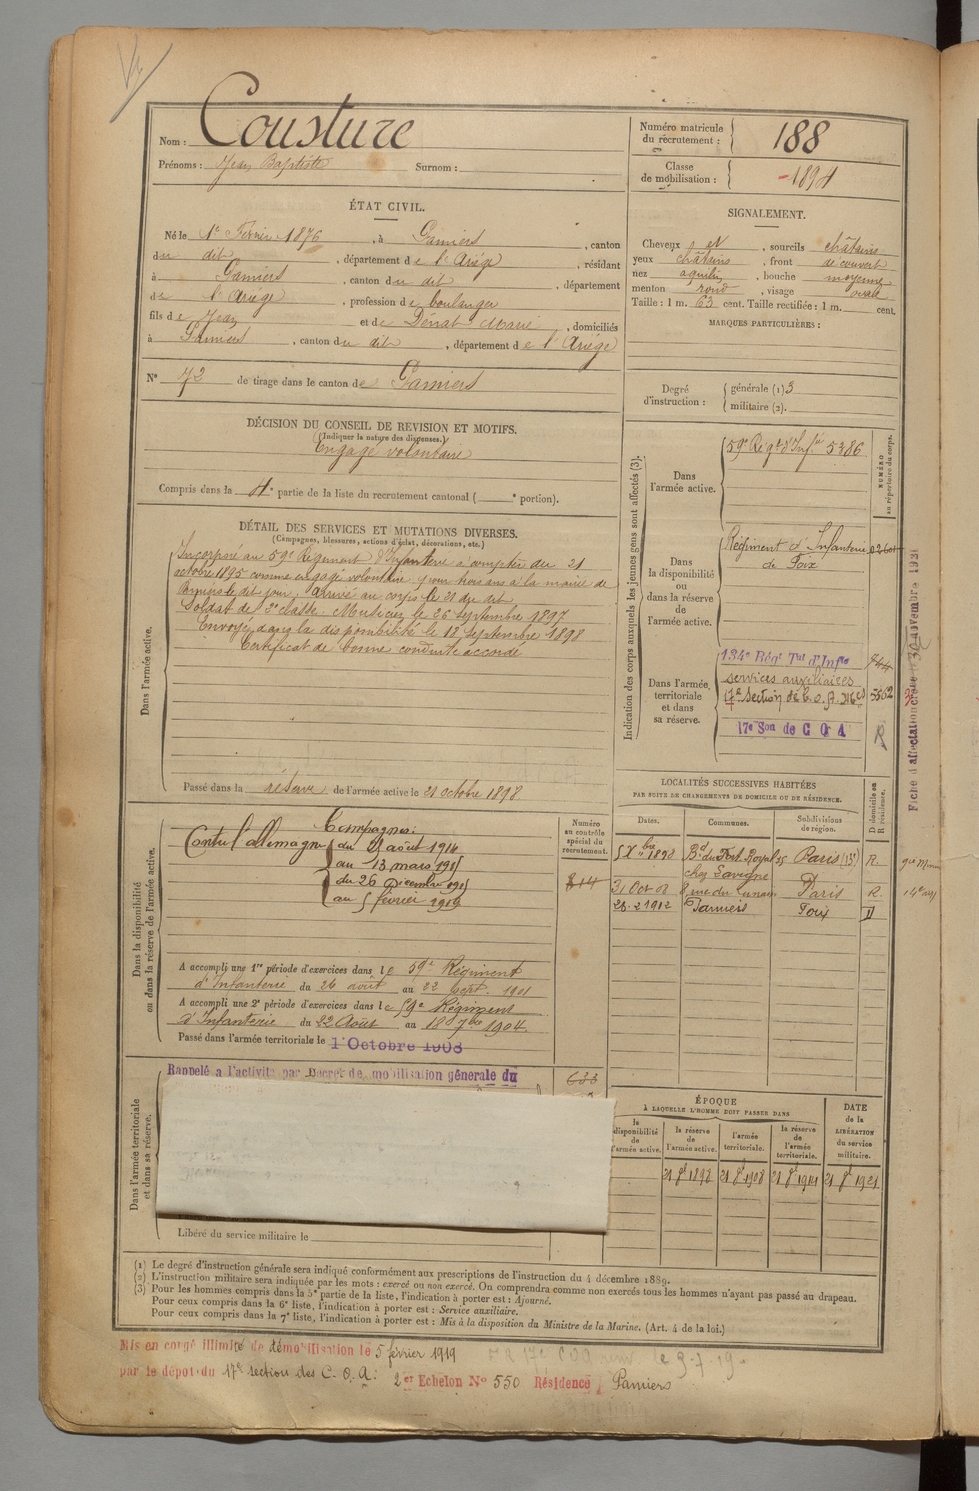 Nom : Cousture
Prénoms : Jean Baptiste Surnom :
Numéro matricule du recrutement : 188
Classe de mobilisation : 1894
ÉTAT CIVIL.
Né le 1er Février 1876, à Pamiers, canton
du dit, département de l'Ariège, résidant
à Pamiers, canton du dit, département
de l'Ariège, profession de boulanger
fils de Jean et de Dénat Marie, domiciliés
à Pamiers, canton du dit, département de l'Ariège
N° 72 de tirage dans le canton de Pamiers
SIGNALEMENT.
Cheveux et, sourcils châtains
yeux châtains, front découvert
nez aquilin, bouche moyenne
menton rond, visage ovale
Taille : 1 m. 63 cent. Taille rectifiée : 1 m. cent.
MARQUES PARTICULIÈRES :
Degré d'instruction : générale (1) 3
militaire (2).
DÉCISION DU CONSEIL DE REVISION ET MOTIFS.
(Indiquer la nature des dispenses.)
Engagé volontaire
Compris dans la 4e partie de la liste du recrutement cantonal ( e portion).
DÉTAIL DES SERVICES ET MUTATIONS DIVERSES.
(Campagnes, blessures, actions d'éclat, décorations, etc.)
Dans l'armée active.
Incorporé au 59e Régiment d'Infanterie à compter du 21
octobre 1895 comme engagé volontaire pour trois ans à la mairie de
Pamiers le dit jour, arrivé au corps le 21 du dit
Soldat de 2e classe. Musicien le 26 septembre 1897
Envoyé dans la disponibilité le 18 septembre 1898
Certificat de bonne conduite accordé
Passé dans la réserve de l'armée active le 21 octobre 1898.
Indication des corps auxquels les jeunes gens sont affectés (3).
NUMÉRO au répertoire du corps.
Dans l'armée active.
59e Régt d'Infie 5386
Dans la disponibilité ou dans la réserve de l'armée active.
Régiment d'Infanterie
de Foix
Dans l'armée territoriale et dans sa réserve.
134e Régt Tal d'Infie
services auxiliaires
17e Section de C.O.A.
17e Son de C O A
R
Fiche d'affectation créée 30 novembre 1931
Dans la disponibilité ou dans la réserve de l'armée active.
Numéro au contrôle spécial du recrutement.
814
Campagnes :
Contre l'allemagne du 4 août 1914
au 13 mars 1915
du 26 Décembre 1915
au 5 février 1919
A accompli une 1re période d'exercices dans le 59e Régiment
d'Infanterie du 26 août au 22 Sept. 1901
A accompli une 2e période d'exercices dans le 59e Régiment
d'Infanterie du 22 Août au 18 7bre 1904.
Passé dans l'armée territoriale le 1 Octobre 1908
LOCALITÉS SUCCESSIVES HABITÉES
PAR SUITE DE CHANGEMENTS DE DOMICILE OU DE RÉSIDENCE.
Dates. Communes. Subdivisions de région. D domicile ou R résidence.
Bd du Port Royal 25 Paris (13e) R.
chez Lavigne
Paris R.
28-2 1912 Pamiers Foix D
Dans l'armée territoriale et dans sa réserve.
Rappelé à l'activité par Décret de mobilisation générale du
633
Libéré du service militaire le
ÉPOQUE
À LAQUELLE L'HOMME DOIT PASSER DANS
la disponibilité de l'armée active. la réserve de l'armée active. l'armée territoriale. la réserve de l'armée territoriale. DATE de la LIBÉRATION du service militaire.
21 8e 1898 21 8e 1908 21 8e 1914 21 8e 1921
(1) Le degré d'instruction générale sera indiqué conformément aux prescriptions de l'instruction du 4 décembre 1889.
(2) L'instruction militaire sera indiquée par les mots : exercé ou non exercé. On comprendra comme non exercés tous les hommes n'ayant pas passé au drapeau.
(3) Pour les hommes compris dans la 5e partie de la liste, l'indication à porter est : Ajourné.
Pour ceux compris dans la 6e liste, l'indication à porter est : Service auxiliaire.
Pour ceux compris dans la 7e liste, l'indication à porter est : Mis à la disposition du Ministre de la Marine. (Art. 4 de la loi.)
Mis en congé illimité de démobilisation le 5 février 1919
par le dépôt du 17e section des C. O. A. 2e Echelon N° 550 Résidence Pamiers